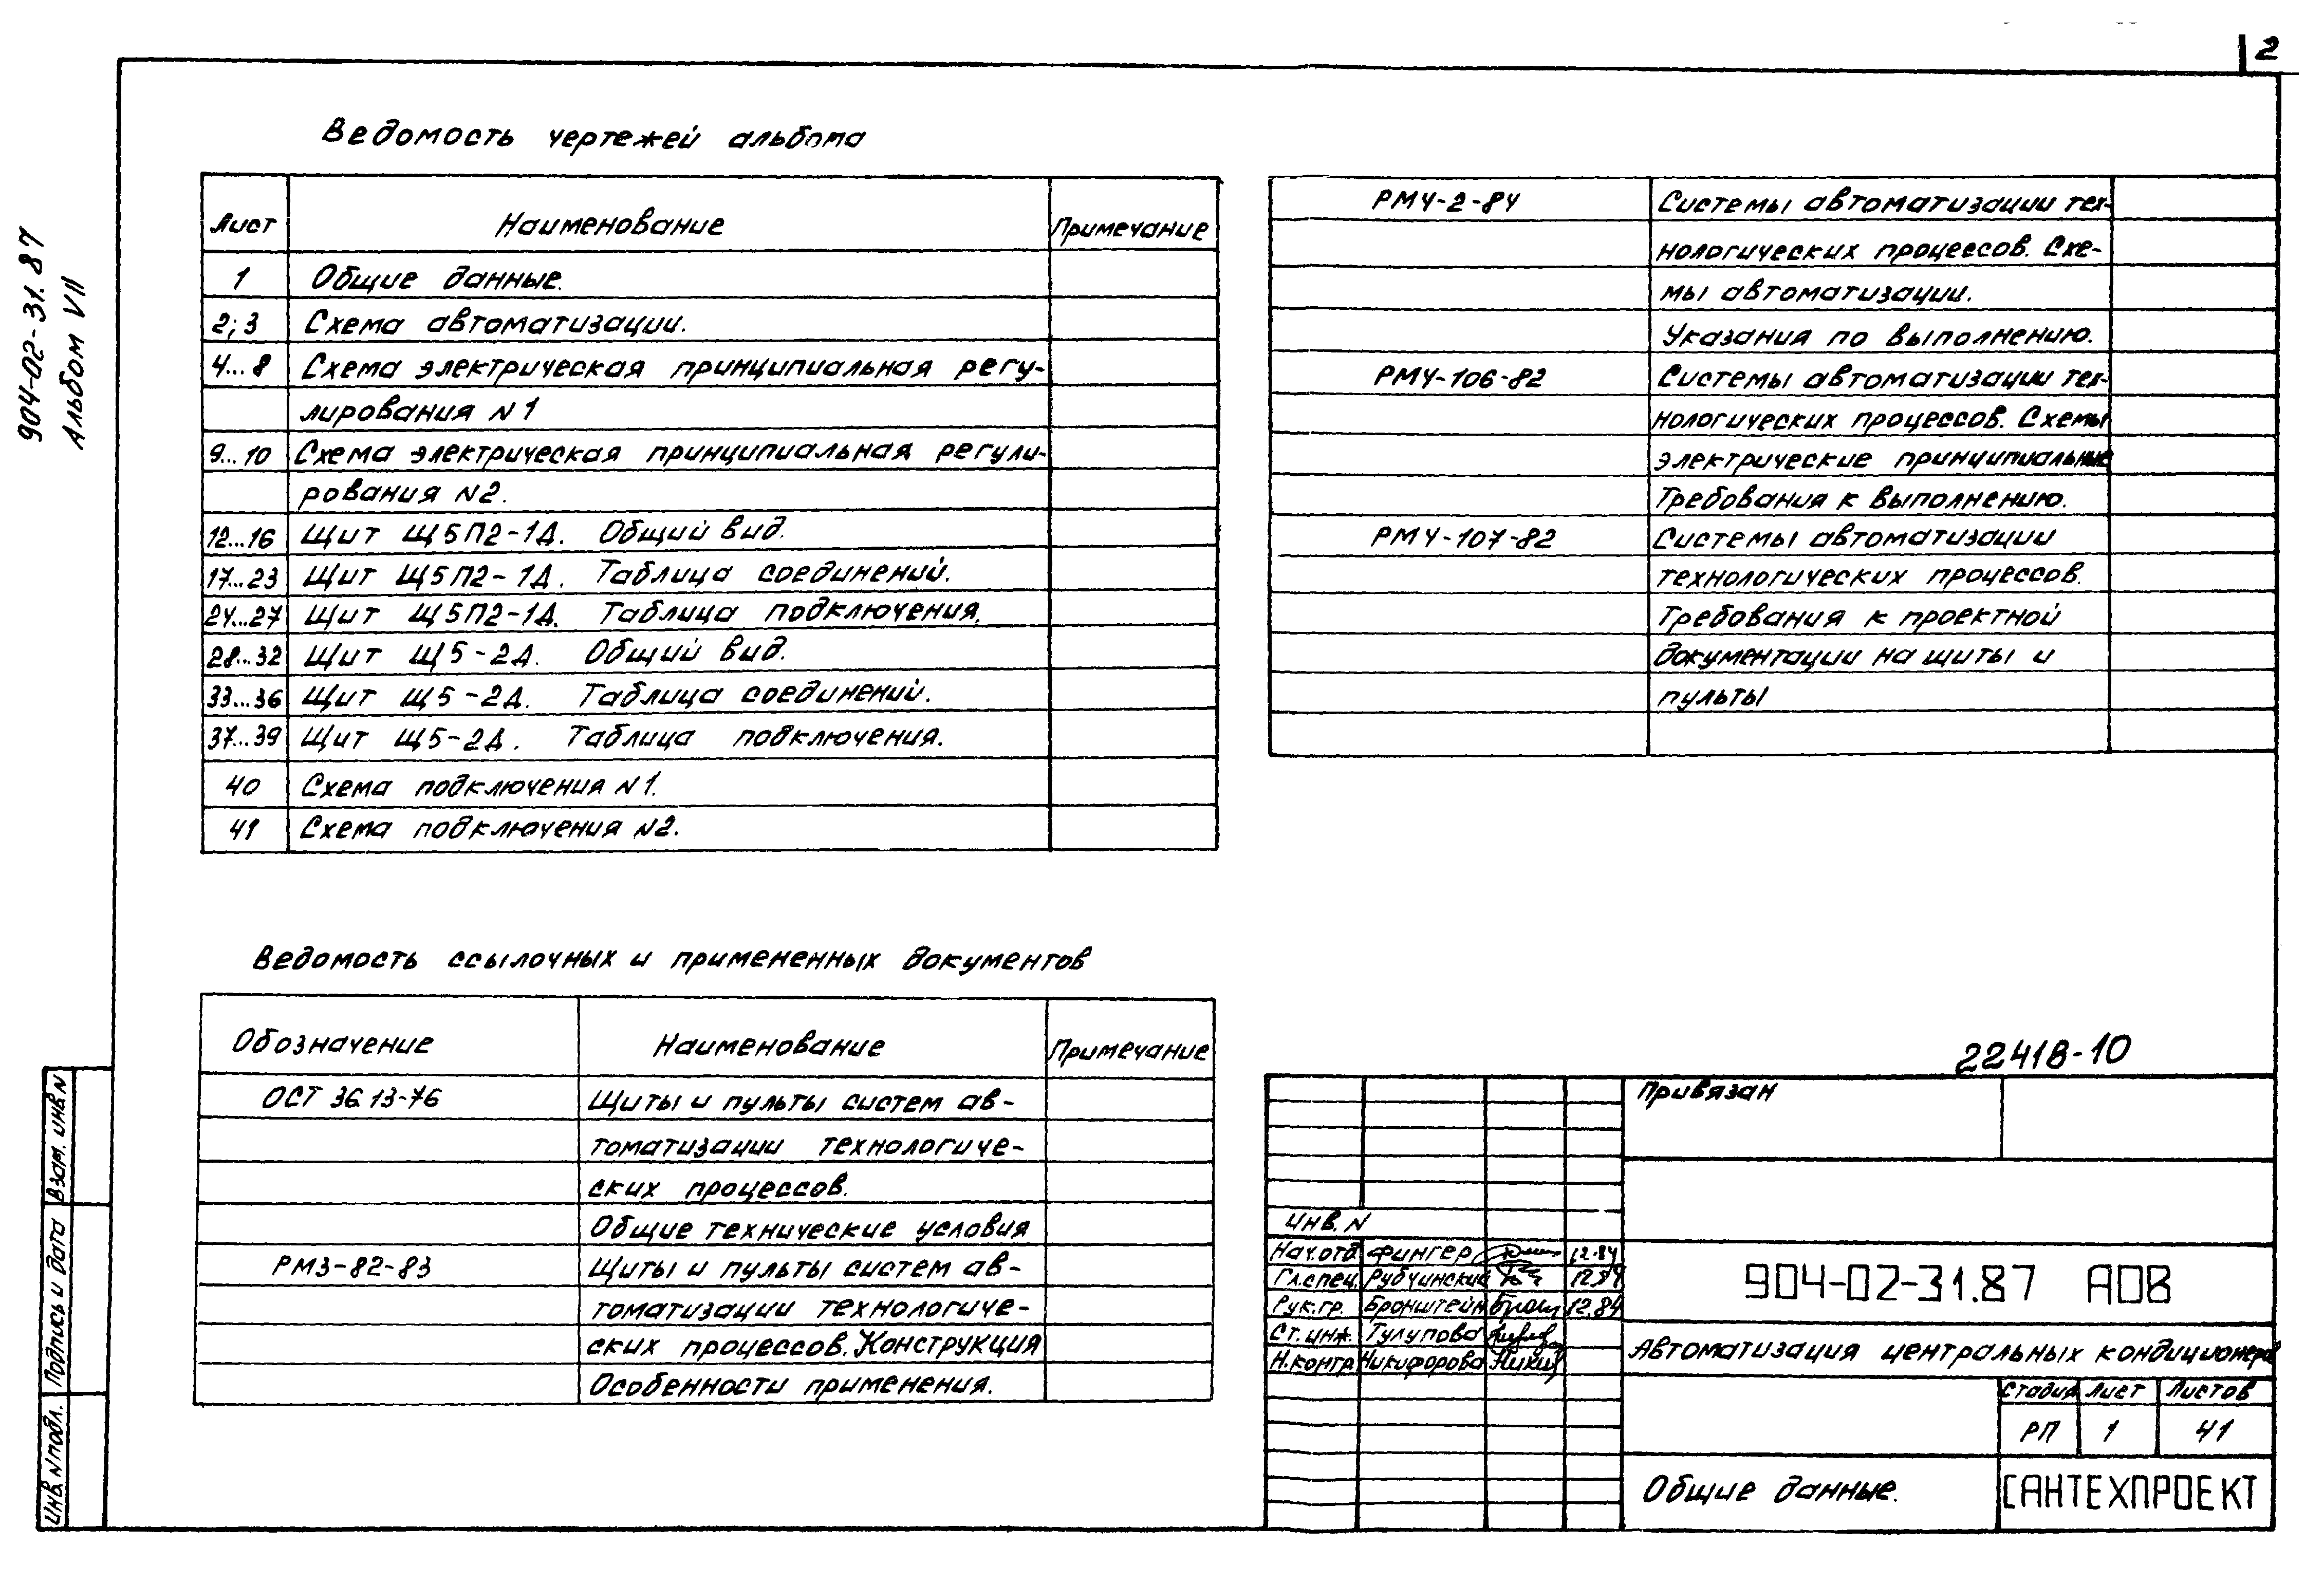 2
904-02-31.87
Альбом VII
Ведомость чертежей альбома
Лист Наименование Примечание
1 Общие данные.
2; 3 Схема автоматизации.
4...8 Схема электрическая принципиальная регу-
лирования N1
9...10 Схема электрическая принципиальная регули-
рования N2.
12...16 Щит Щ5П2-1Д. Общий вид.
17...23 Щит Щ5П2-1Д. Таблица соединений.
24...27 Щит Щ5П2-1Д. Таблица подключения.
28...32 Щит Щ5-2Д. Общий вид.
33...36 Щит Щ5-2Д. Таблица соединений.
37...39 Щит Щ5-2Д. Таблица подключения.
40 Схема подключения N1.
41 Схема подключения N2.
Ведомость ссылочных и примененных документов
Обозначение Наименование Примечание
ОСТ 36.13-76 Щиты и пульты систем ав-
томатизации технологиче-
ских процессов.
Общие технические условия
РМ3-82-83 Щиты и пульты систем ав-
томатизации технологиче-
ских процессов. Конструкция
Особенности применения.
РМ4-2-84 Системы автоматизации тех-
нологических процессов. Схе-
мы автоматизации.
Указания по выполнению.
РМ4-106-82 Системы автоматизации тех-
нологических процессов. Схемы
электрические принципиальные
Требования к выполнению.
РМ4-107-82 Системы автоматизации
технологических процессов.
Требования к проектной
документации на щиты и
пульты
22418-10
Привязан
Инв. N
Нач.отд. Фингер 12.84
Гл.спец. Рубчинский 12.84
Рук.гр. Бронштейн 12.84
Ст.инж. Тулупова
Н.контр. Никифорова
904-02-31.87 АОВ
Автоматизация центральных кондиционеров
Стадия Лист Листов
РП 1 41
Общие данные.
САНТЕХПРОЕКТ
Взам. инв. N
Подпись и дата
Инв. N подл.